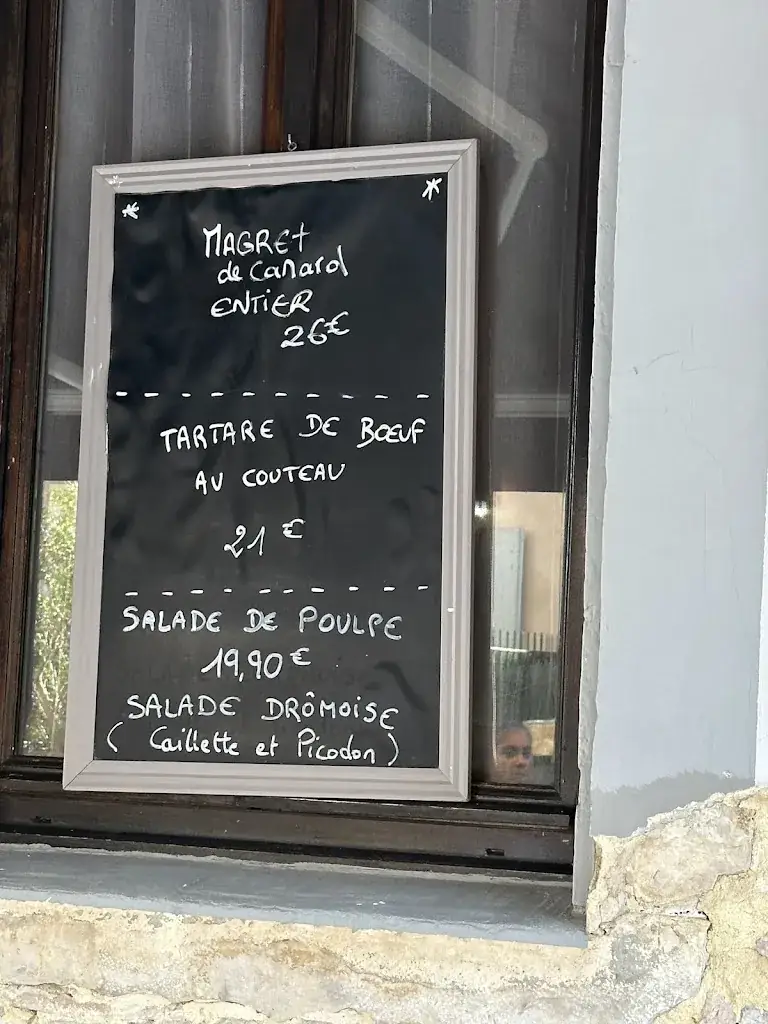 MAGRET
de Canard
ENTIER
26€
TARTARE DE BŒUF
AU COUTEAU
21€
SALADE DE POULPE
19,90€
SALADE DRÔMOISE
(Caillette et Picodon)